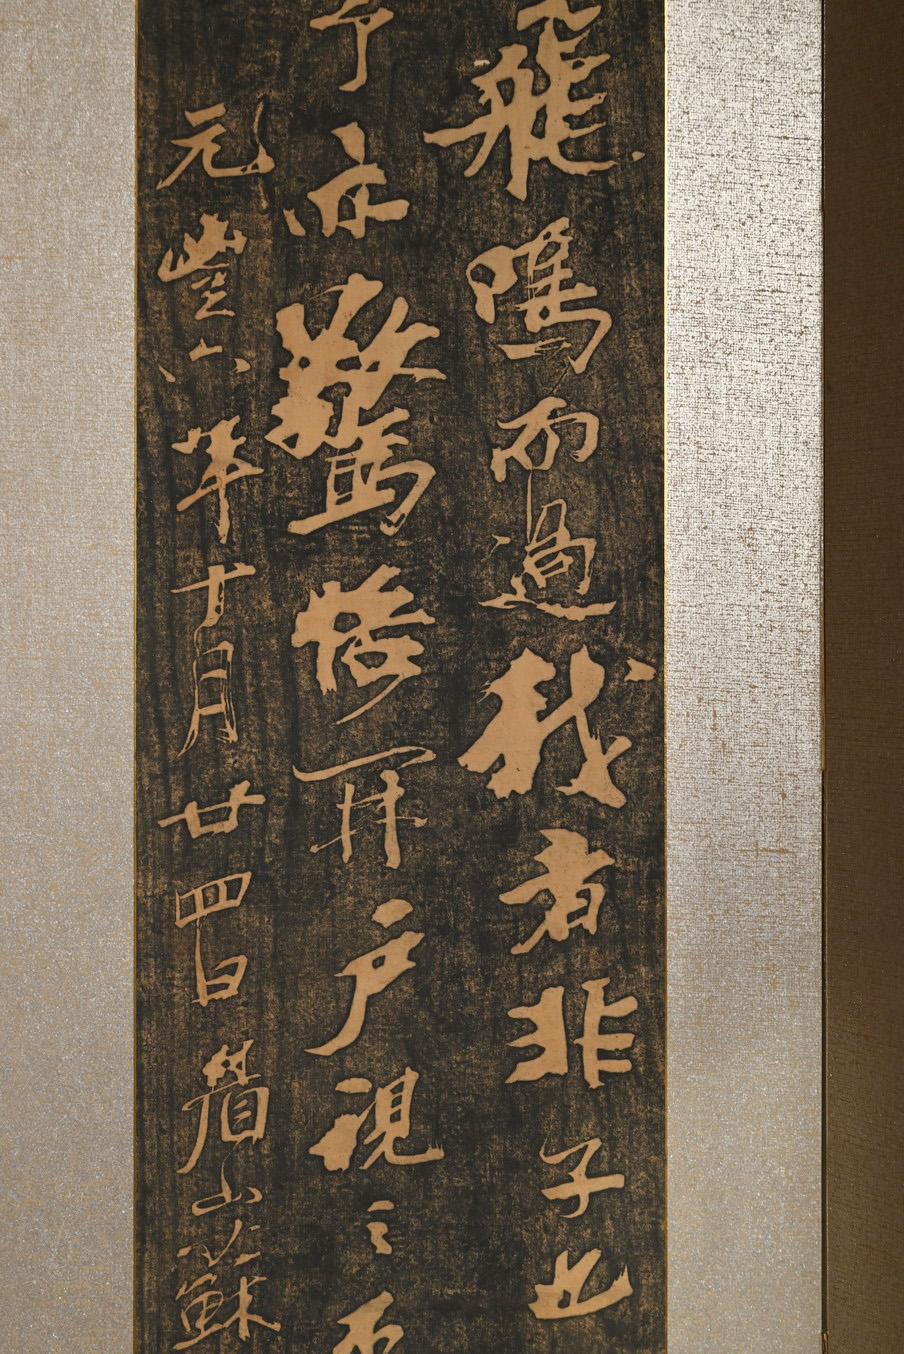 飛鳴而過我者非子也
予亦驚悟開戶視之不
元豐六年十月廿四日眉山蘇